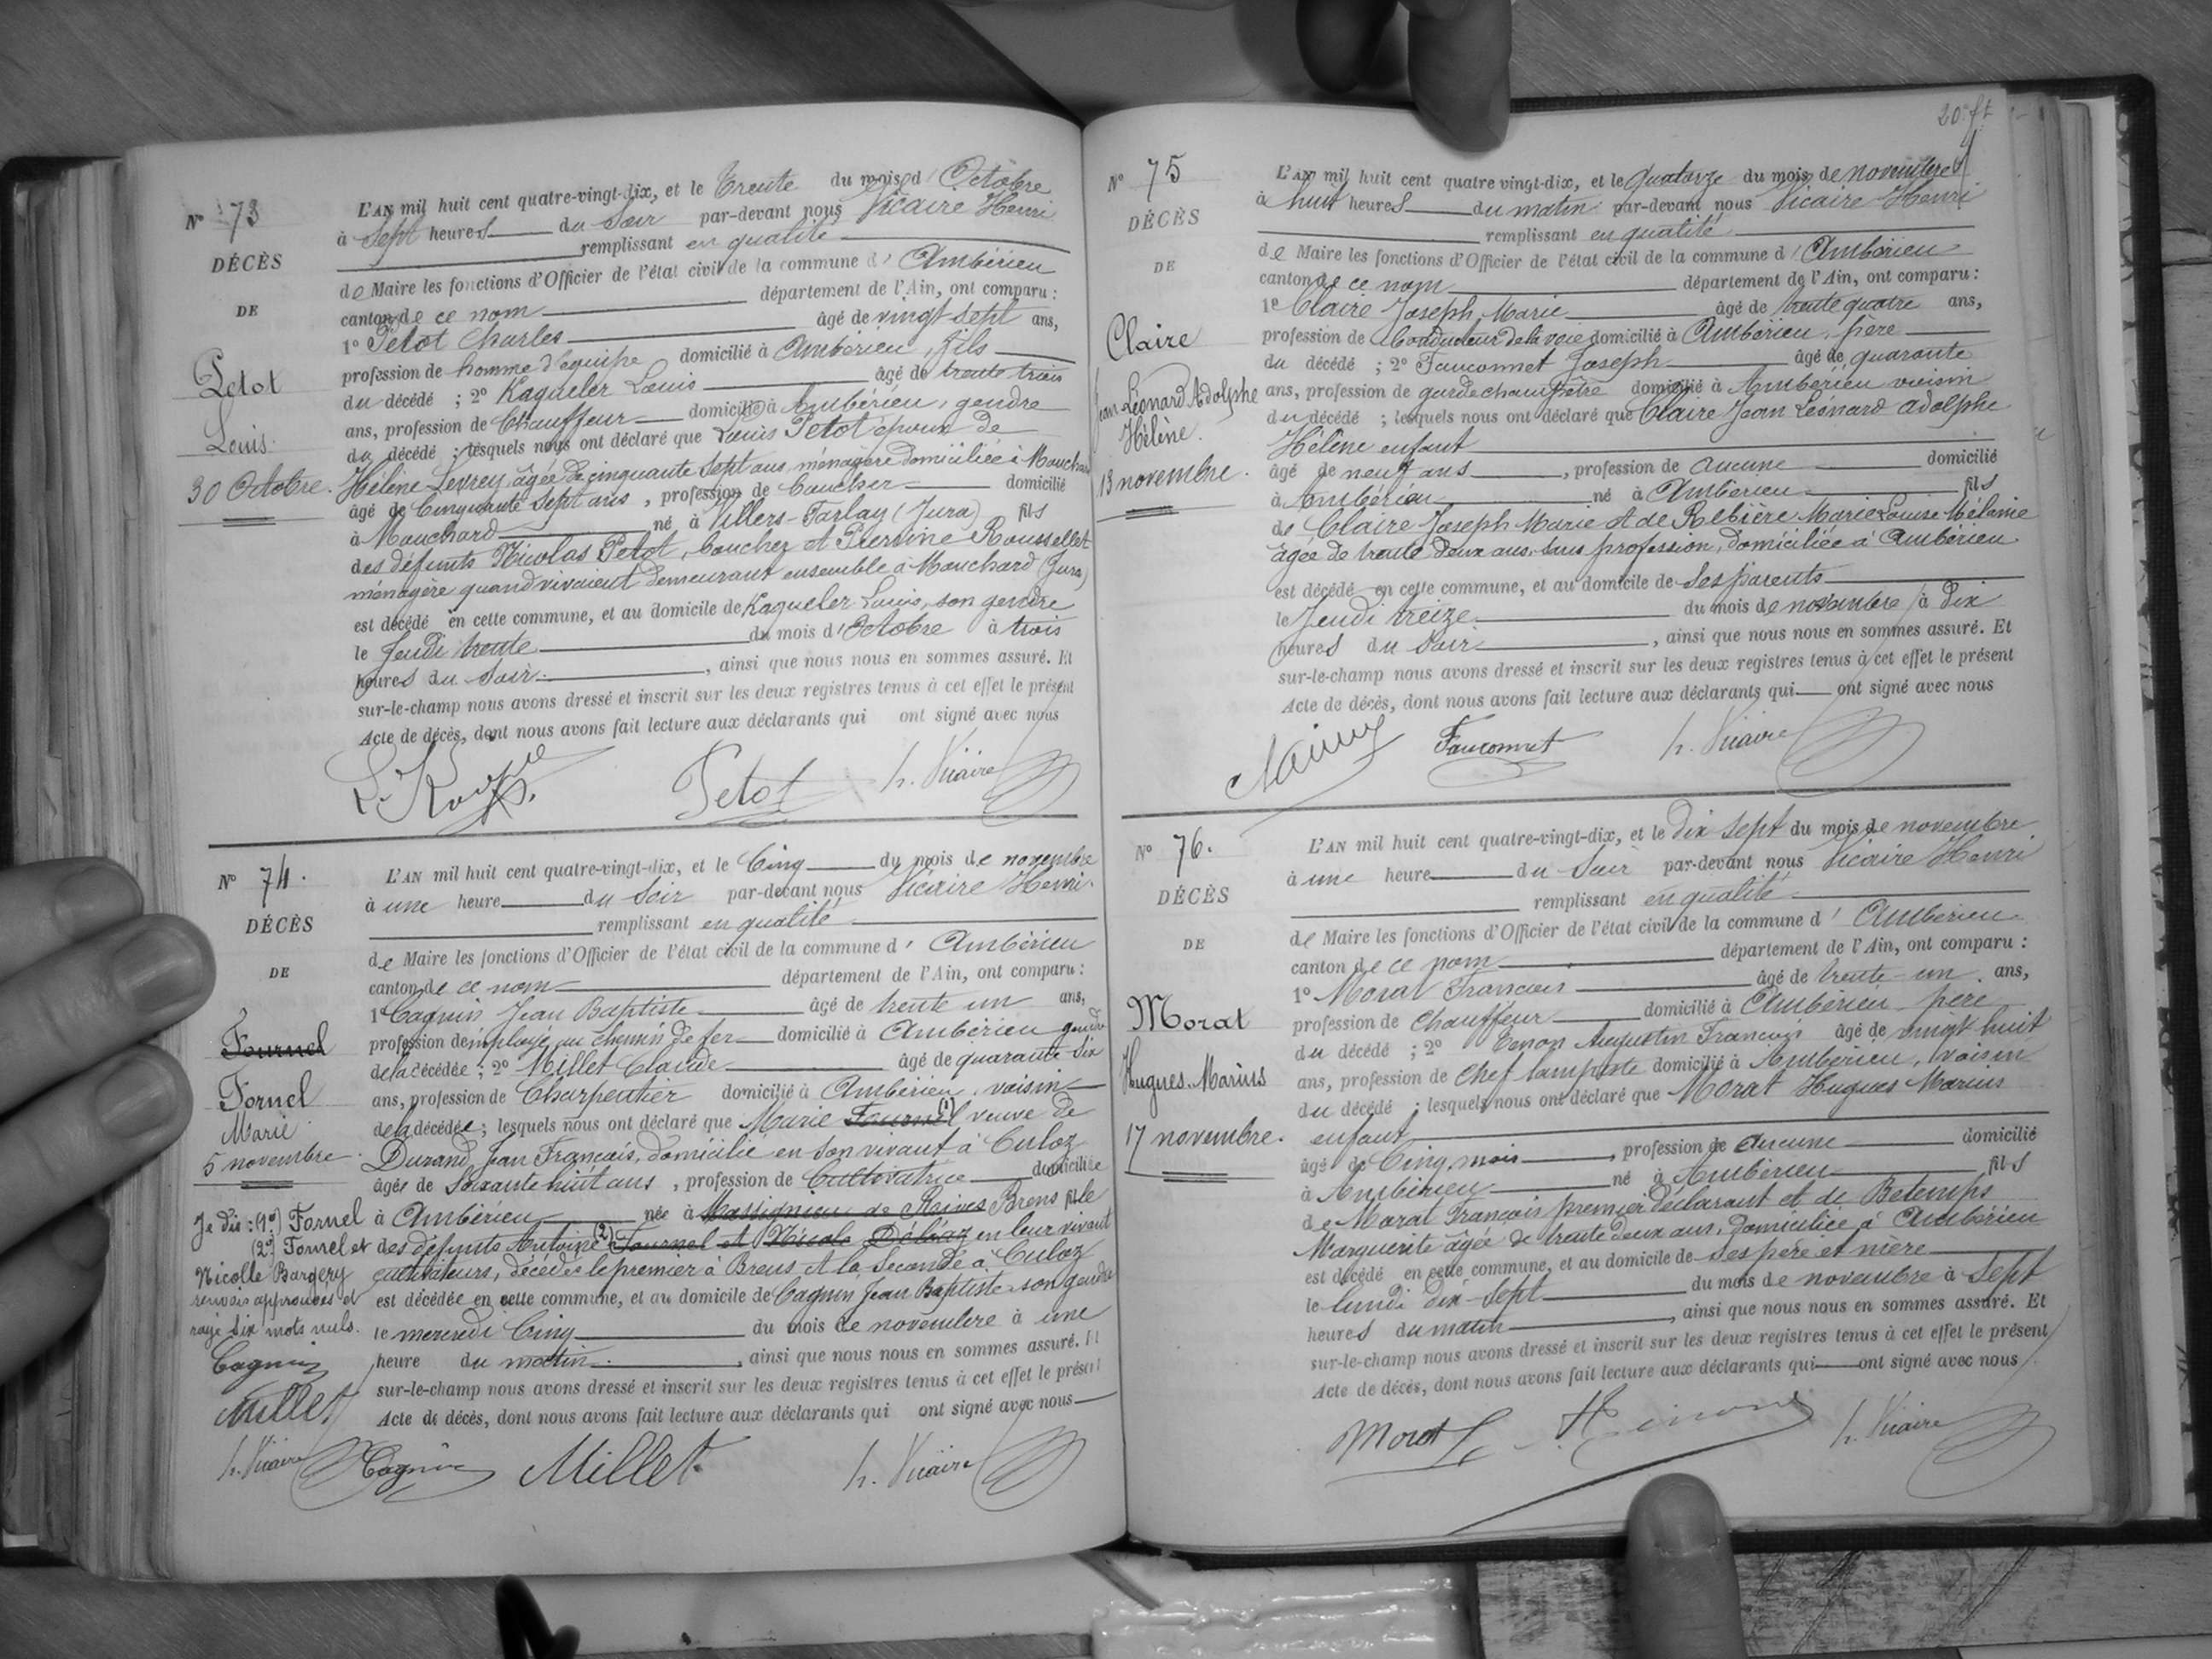 Nº 73
DÉCÈS
DE
Petot
Louis
30 Octobre.
L'AN mil huit cent quatre-vingt-dix, et le Trente du mois d'Octobre
à Sept heures du Soir par-devant nous Vicaire Henri
remplissant en qualité
de Maire les fonctions d'Officier de l'état civil de la commune d'Ambérieu
canton de ce nom département de l'Ain, ont comparu :
1º Petot Charles âgé de vingt-sept ans,
profession de homme d'équipe domicilié à Ambérieu, fils
du décédé ; 2º Kaqueler Louis âgé de trente trois
ans, profession de Chauffeur domicilié à Ambérieu, gendre
du décédé ; lesquels nous ont déclaré que Louis Petot époux de
Hélène Levrey âgée de cinquante sept ans, ménagère domiciliée à Mouchard
âgé de Cinquante Sept ans, profession de boucher domicilié
à Mouchard né à Villers-Farlay (Jura) fils
des défunts Nicolas Petot, boucher et Pierrine Rousselet
ménagère quand vivaient demeurant ensemble à Mouchard (Jura)
est décédé en cette commune, et au domicile de Kaqueler Louis, son gendre
le Jeudi trente du mois d'Octobre à trois
heures du Soir, ainsi que nous nous en sommes assuré. Et
sur-le-champ nous avons dressé et inscrit sur les deux registres tenus à cet effet le présent
Acte de décès, dont nous avons fait lecture aux déclarants qui ont signé avec nous
Petot h. Vicaire
Nº 74.
DÉCÈS
DE
Fournel
Fornel
Marie
5 novembre.
Je dis : (1º) Fornel
(2º) Fornel et
Nicolle Bargery
renvois approuvés et
rayé six mots nuls.
Cagnin
Millet
h. Vicaire
L'AN mil huit cent quatre-vingt-dix, et le Cinq du mois de novembre
à une heure du Soir par-devant nous Vicaire Henri.
remplissant en qualité
de Maire les fonctions d'Officier de l'état civil de la commune d'Ambérieu
canton de ce nom département de l'Ain, ont comparu :
1º Cagnin Jean Baptiste âgé de trente un ans,
profession d'employé au chemin de fer domicilié à Ambérieu gendre
de la décédée ; 2º Millet Claude âgé de quarante six
ans, profession de Charpentier domicilié à Ambérieu, voisin
de la décédée ; lesquels nous ont déclaré que Marie Fournel (1) veuve de
Durand Jean Français, domicilié en son vivant à Culoz
âgée de Soixante huit ans, profession de Cultivatrice domiciliée
à Ambérieu née à Massignieu de Rives Brens fille
des défunts Antoine (2) Fournel et Nicole Déléaz en leur vivant
cultivateurs, décédés le premier à Brens et la Seconde à Culoz
est décédée en cette commune, et au domicile de Cagnin Jean Baptiste son gendre
le mercredi Cinq du mois de novembre à une
heure du matin, ainsi que nous nous en sommes assuré. Et
sur-le-champ nous avons dressé et inscrit sur les deux registres tenus à cet effet le présent
Acte de décès, dont nous avons fait lecture aux déclarants qui ont signé avec nous
Cagnin Millet h. Vicaire
20e ft
Nº 75
DÉCÈS
DE
Claire
Jean Léonard Adolphe
Hélène.
13 novembre.
L'AN mil huit cent quatre vingt-dix, et le quatorze du mois de novembre
à huit heures du matin par-devant nous Vicaire Henri
remplissant en qualité
de Maire les fonctions d'Officier de l'état civil de la commune d'Ambérieu
canton de ce nom département de l'Ain, ont comparu :
1º Claire Joseph Marie âgé de trente quatre ans,
profession de Conducteur de la voie domicilié à Ambérieu, père
du décédé ; 2º Fauconnet Joseph âgé de quarante
ans, profession de garde champêtre domicilié à Ambérieu voisin
du décédé ; lesquels nous ont déclaré que Claire Jean Léonard Adolphe
Hélène enfant
âgé de neuf ans, profession de aucune domicilié
à Ambérieu né à Ambérieu fils
de Claire Joseph Marie et de Rebière Marie Louise Mélanie
âgée de trente deux ans, sans profession, domiciliée à Ambérieu
est décédé en cette commune, et au domicile de Ses parents
le Jeudi treize du mois de novembre à dix
heures du Soir, ainsi que nous nous en sommes assuré. Et
sur-le-champ nous avons dressé et inscrit sur les deux registres tenus à cet effet le présent
Acte de décès, dont nous avons fait lecture aux déclarants qui ont signé avec nous
Fauconnet h. Vicaire
Nº 76.
DÉCÈS
DE
Morat
Hugues Marius
17 novembre.
L'AN mil huit cent quatre-vingt-dix, et le dix sept du mois de novembre
à une heure du Soir par-devant nous Vicaire Henri
remplissant en qualité
de Maire les fonctions d'Officier de l'état civil de la commune d'Ambérieu
canton de ce nom département de l'Ain, ont comparu :
1º Morat François âgé de trente-un ans,
profession de Chauffeur domicilié à Ambérieu père
du décédé ; 2º Augustin François âgé de vingt huit
ans, profession de Chef lampiste domicilié à Ambérieu, voisin
du décédé ; lesquels nous ont déclaré que Morat Hugues Marius
enfant
âgé de Cinq mois, profession de aucune domicilié
à Ambérieu né à Ambérieu fils
de Morat François premier déclarant et de Betemps
Marguerite âgée de trente deux ans, domiciliée à Ambérieu
est décédé en cette commune, et au domicile de Ses père et mère
le lundi dix-sept du mois de novembre à Sept
heures du matin, ainsi que nous nous en sommes assuré. Et
sur-le-champ nous avons dressé et inscrit sur les deux registres tenus à cet effet le présent
Acte de décès, dont nous avons fait lecture aux déclarants qui ont signé avec nous
Morat h. Vicaire